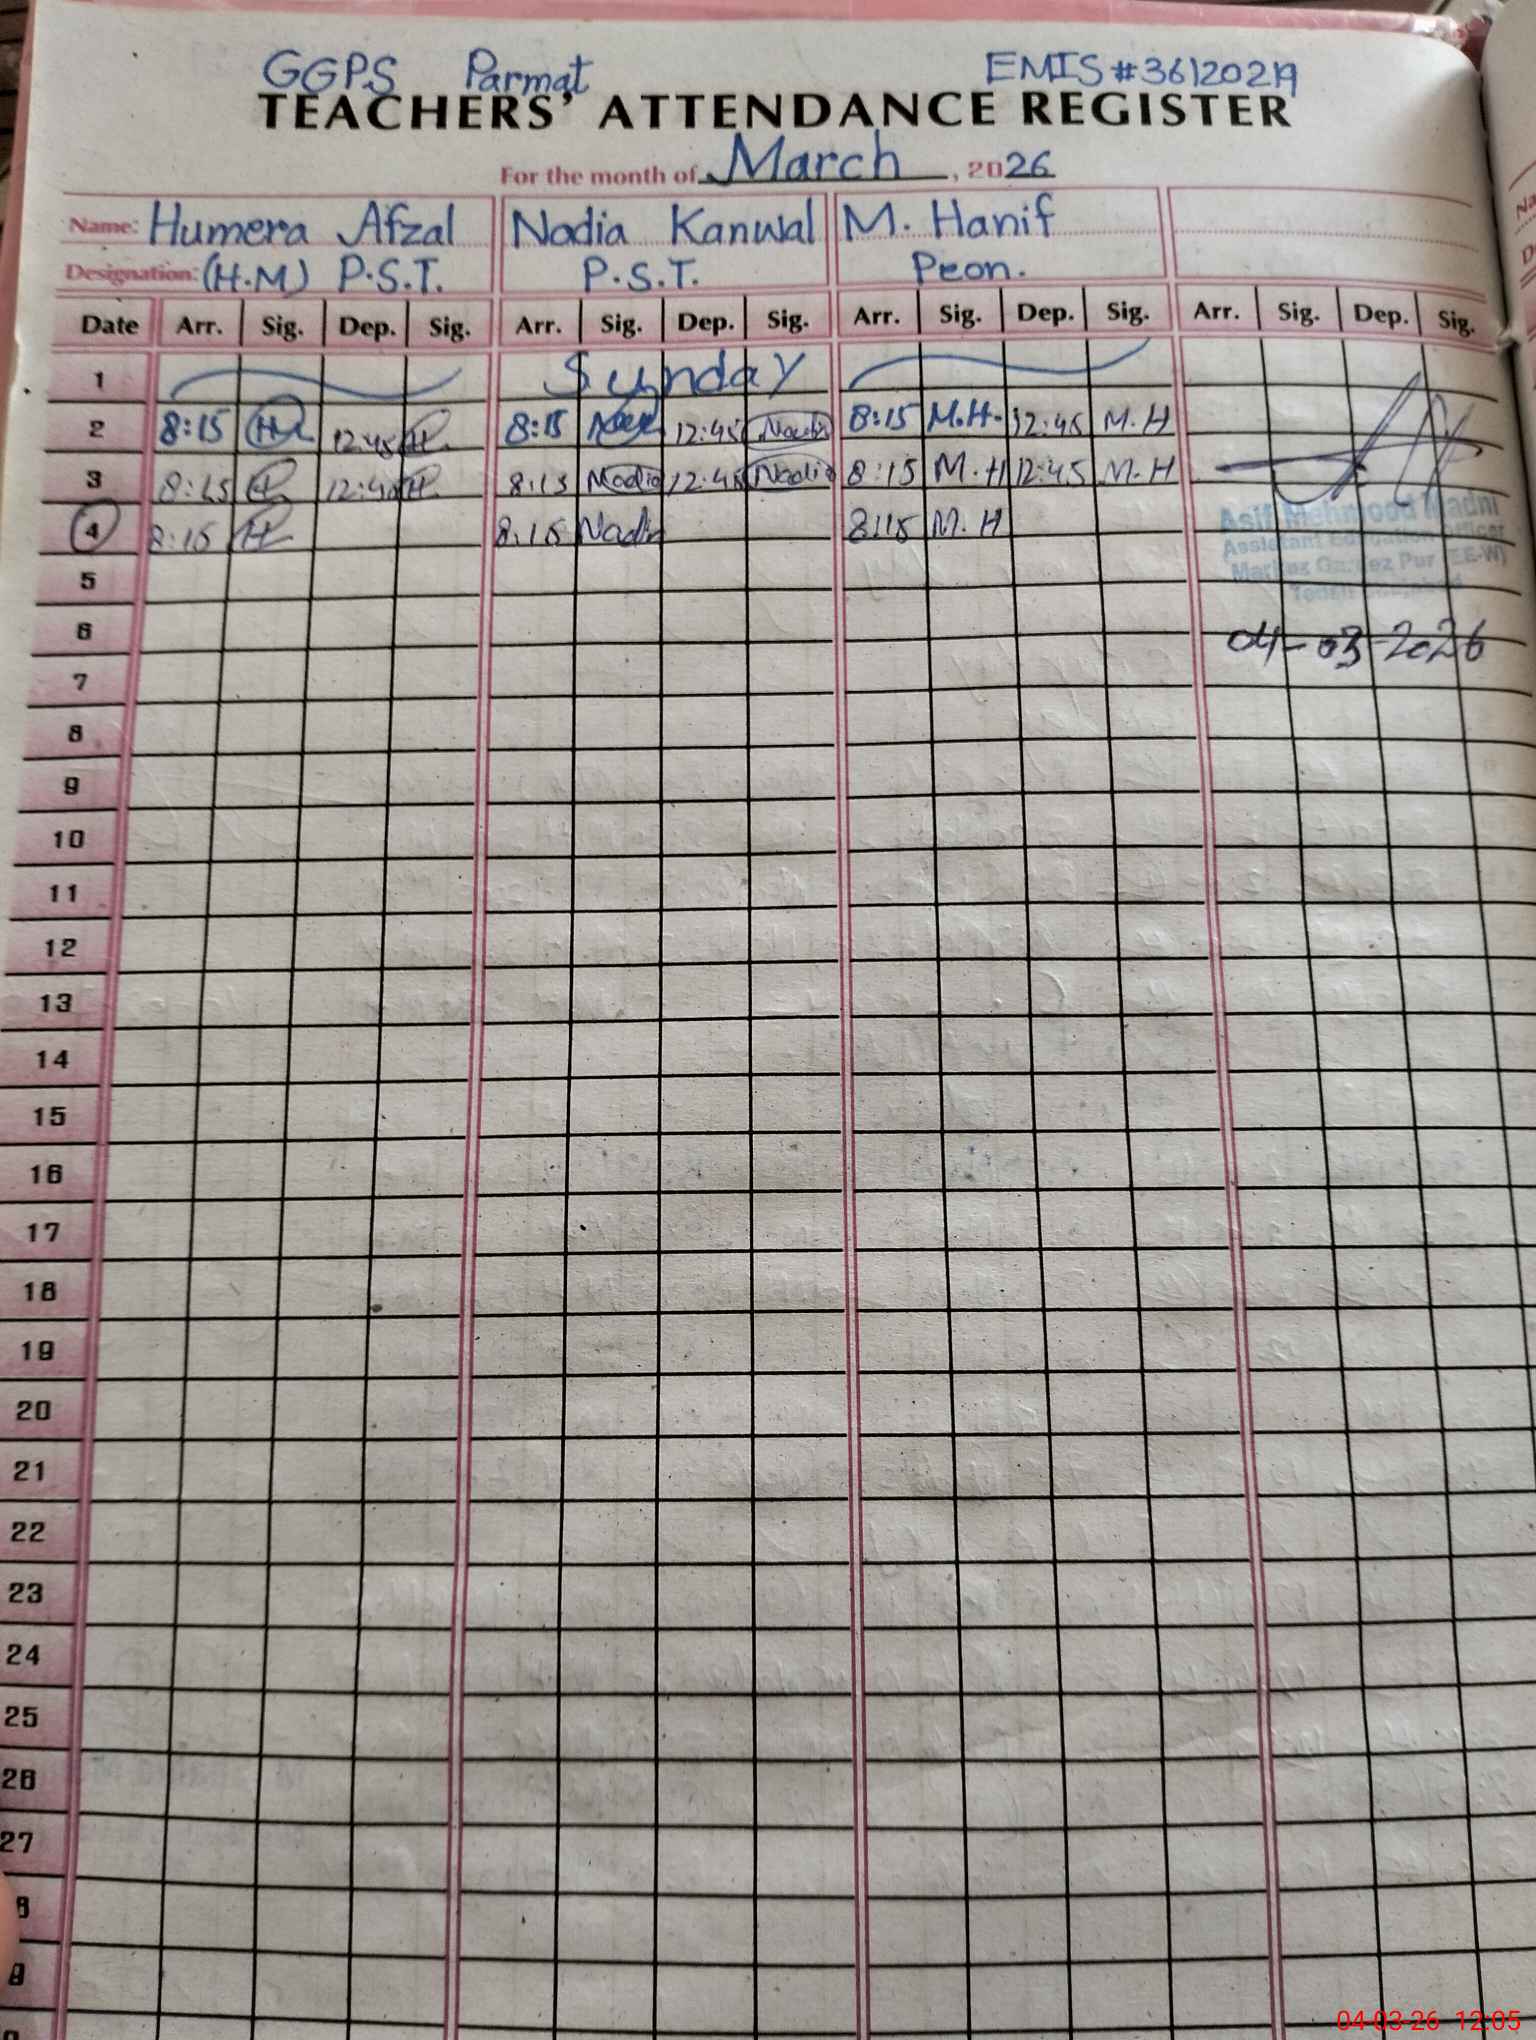 GGPS Parmat EMIS #36120219
TEACHERS' ATTENDANCE REGISTER
For the month of March, 2026
Name: Humera Afzal Nadia Kanwal M. Hanif
Designation: (H.M) P.S.T. P.S.T. Peon.
Date Arr. Sig. Dep. Sig. Arr. Sig. Dep. Sig. Arr. Sig. Dep. Sig. Arr. Sig. Dep. Sig.
1 Sunday
2 8:15 12:45 8:15 12:45 Nadia 8:15 M.H. 12:45 M.H
3 8:15 H 12:45 H 8:15 Nadia 12:45 Nadia 8:15 M.H 12:45 M.H
4 8:15 H 8:15 Nadia 8:15 M.H
Asif Mehmood Madni
Assistant Education Officer
Markaz Pur (EE-W)
5
6 04-03-2026
7
8
9
10
11
12
13
14
15
16
17
18
19
20
21
22
23
24
25
26
27
04-03-26 12:05